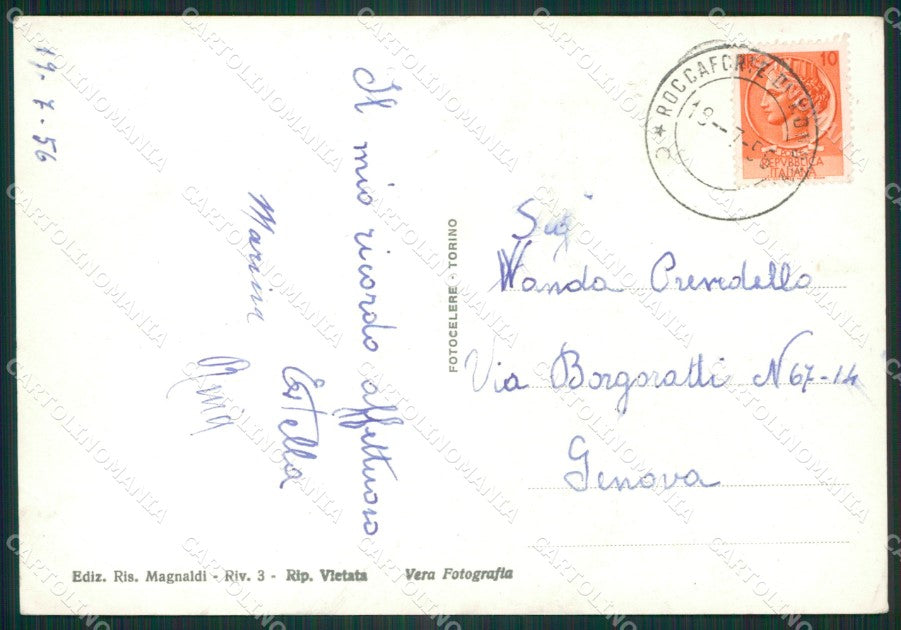 19-7-56
Il mio ricordo affettuoso
Estella
Marina
FOTOCELERE - TORINO
ROCCAFORTE
19--7-5
10
REPVBBLICA
ITALIANA
Wanda Prevedello
Via Borgoratti N 67-14
Genova
Ediz. Ris. Magnaldi - Riv. 3 - Rip. Vietata Vera Fotografia
CARTOLINOMANIA